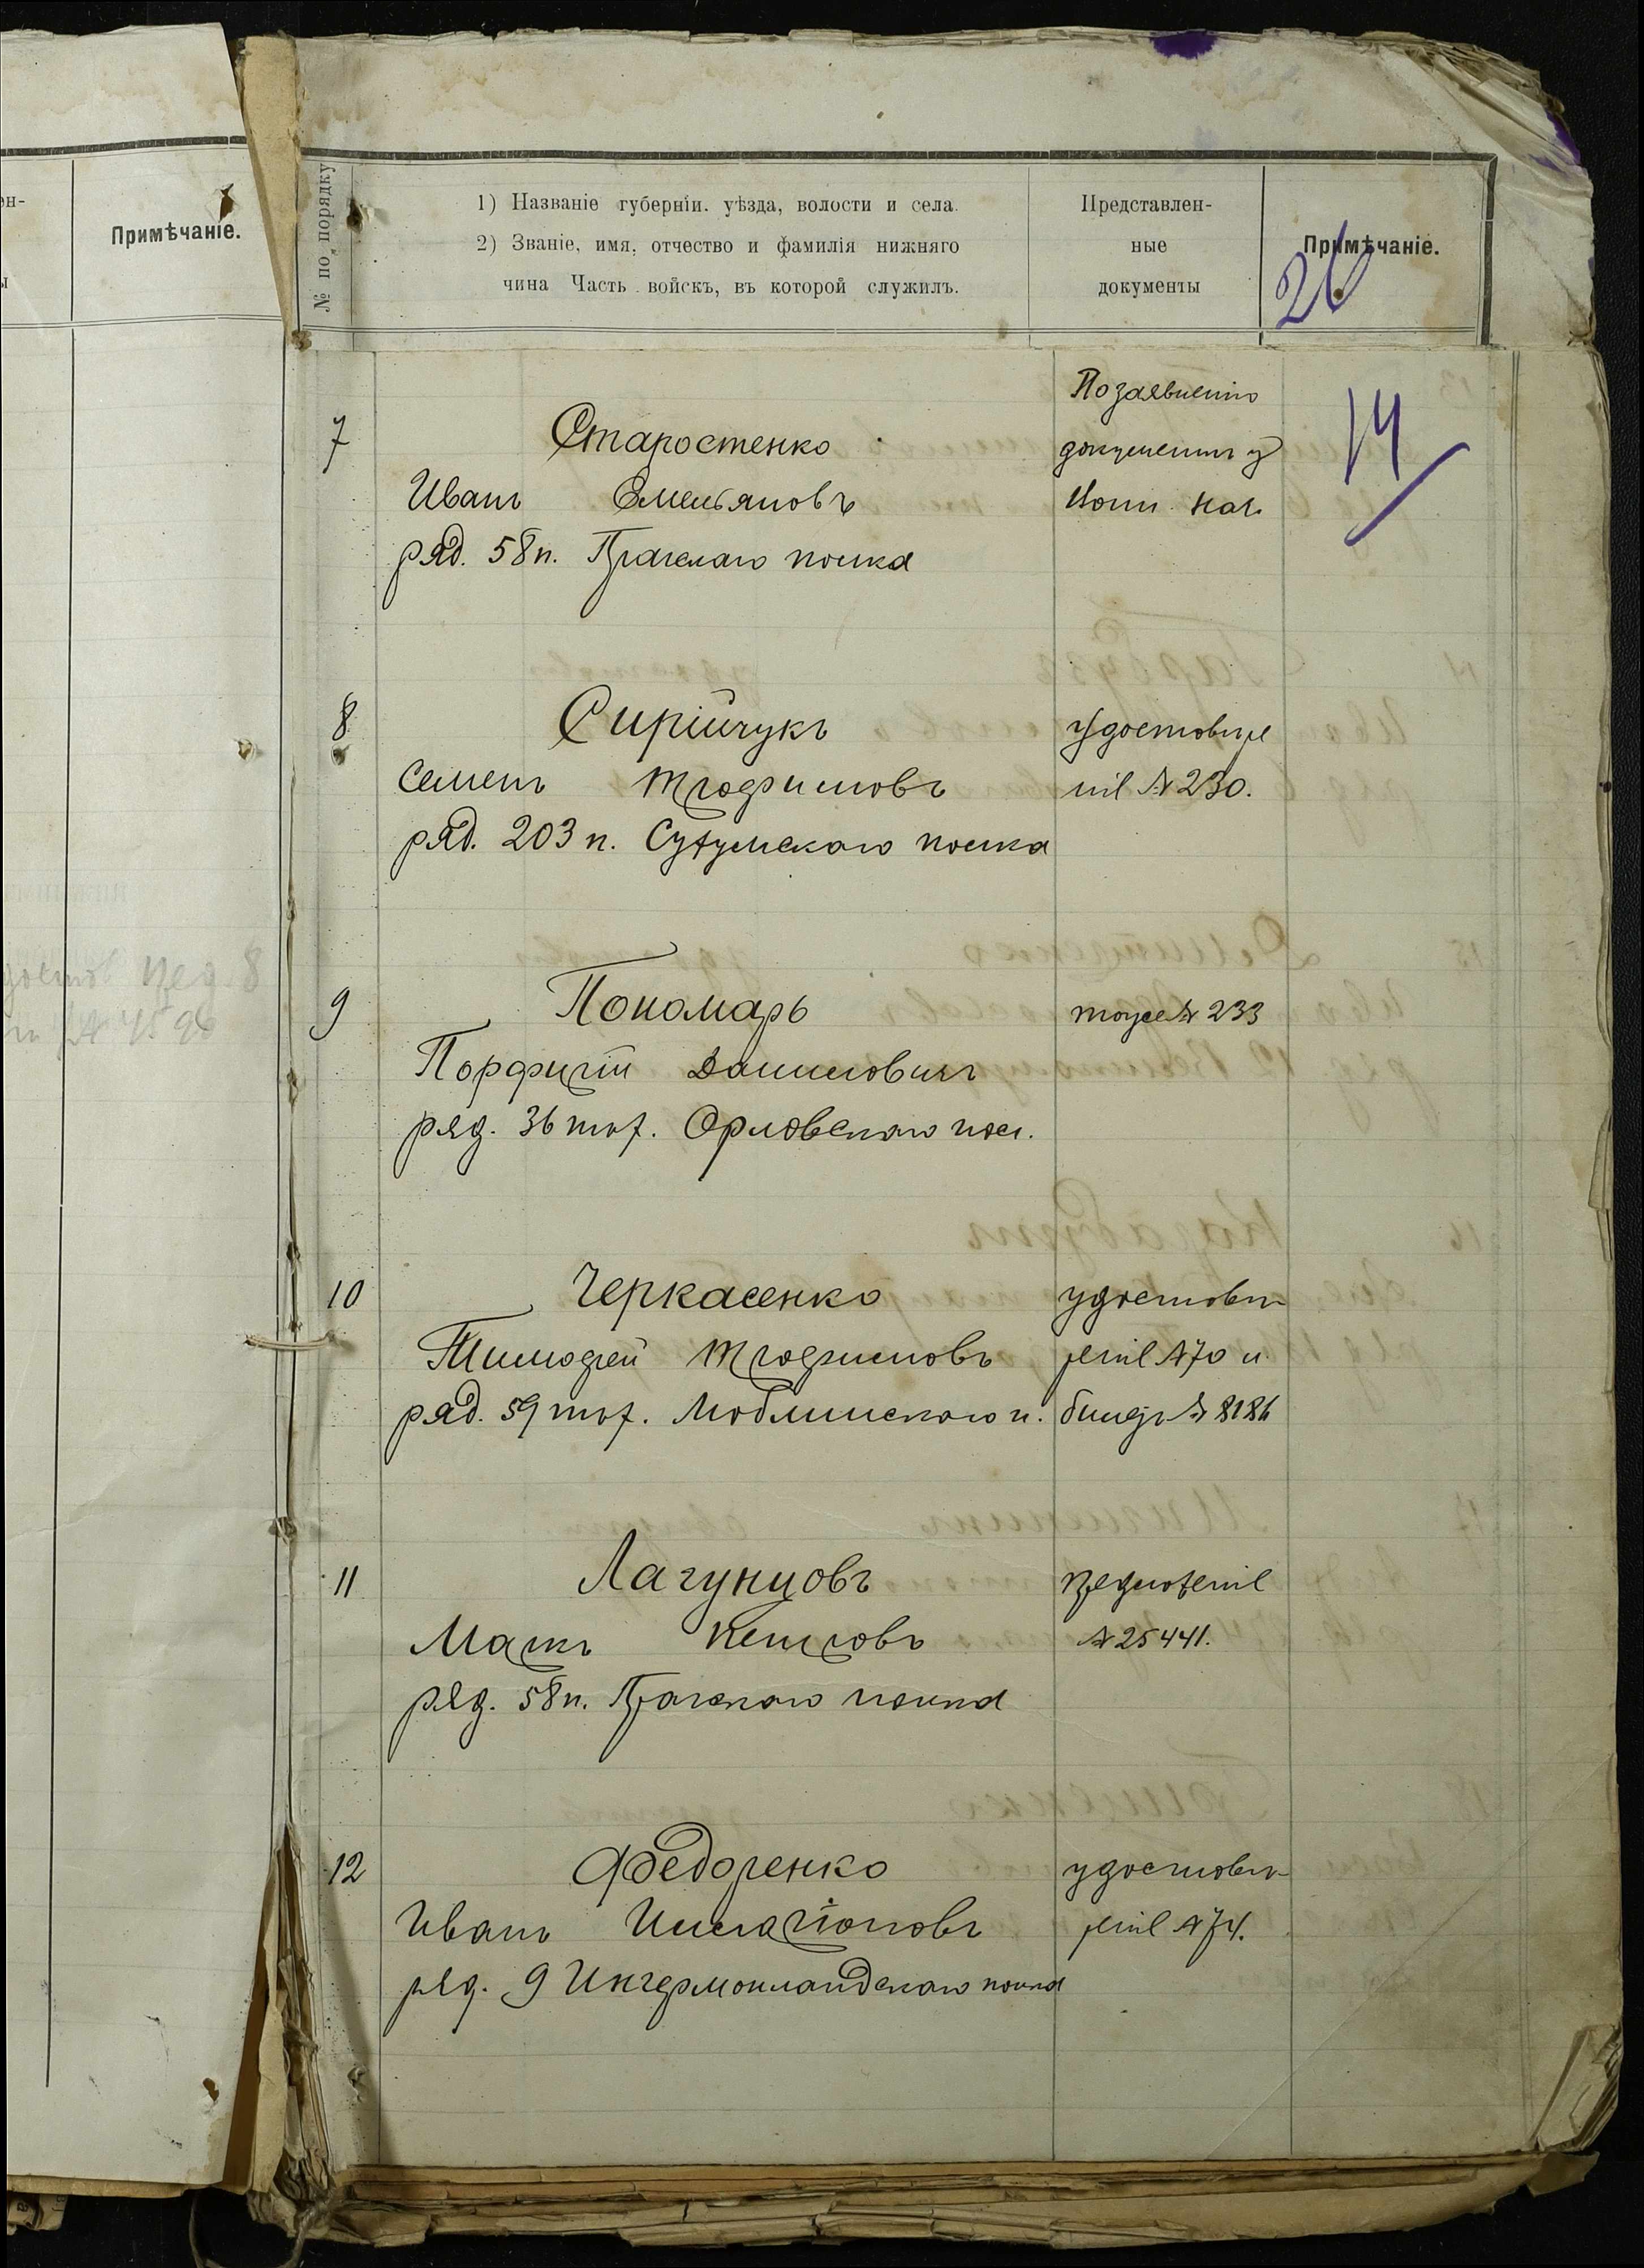 Примѣчаніе.
№ по порядку
1) Названіе губерніи. уѣзда, волости и села.
2) Званіе, имя, отчество и фамилія нижняго
чина Часть войскъ, въ которой служилъ.
Представлен-
ные
документы
Примѣчаніе.
26
14
7
Старостенко
Иванъ Емельяновъ
ряд. 58 п. Прагскаго полка
По заявленію
документы у
Воин. Нач.
8
Сирійчукъ
Семенъ Трофимовъ
ряд. 203 п. Сухумскаго полка
Удостовѣре
ніе № 230.
9
Пономарь
Порфирій Даниловичъ
ряд. 36 пѣх. Орловскаго пол.
тоже № 233
10
Черкасенко
Тимофей Трофимовъ
ряд. 59 пѣх. Люблинскаго п.
удостовѣ-
реніе № 70 и
билетъ № 8186
11
Лагунцовъ
Маркъ
ряд. 58 п. Прагскаго полка
предложеніе
№ 25441.
12
Федоренко
Иванъ Илларіоновъ
ряд. 9 Ингермонландскаго полка
удостовѣ-
реніе № 74.